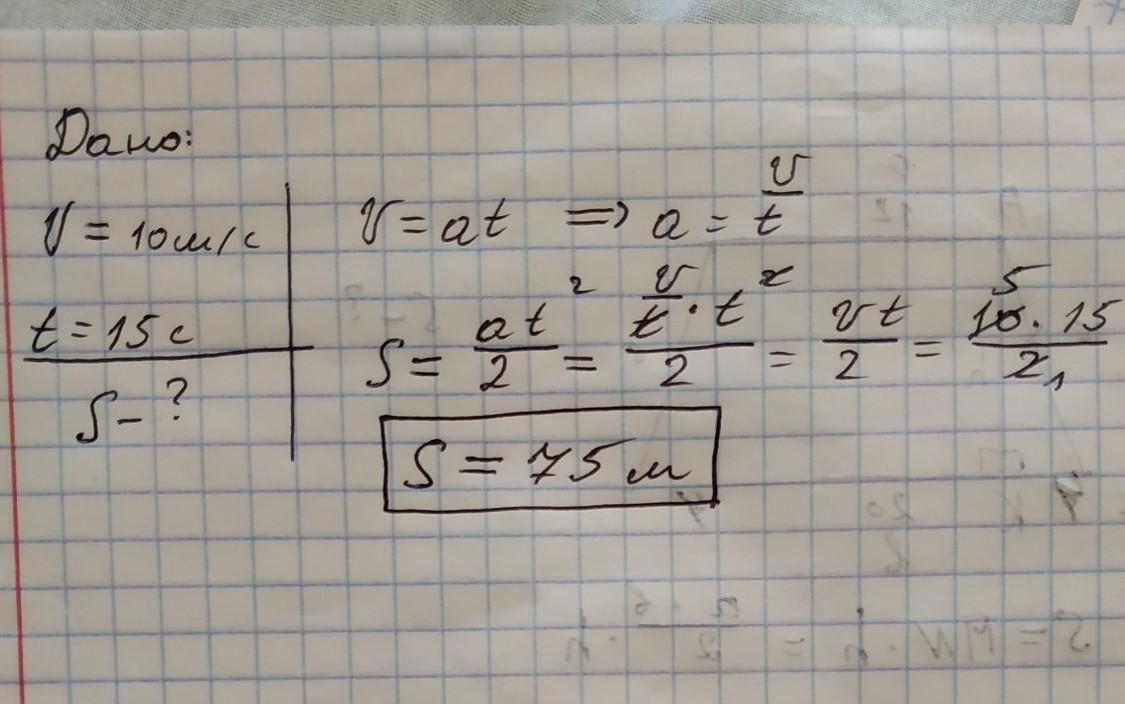 Дано:
V = 10м/с
t = 15с
S - ?
V = at => a = v/t
S = at²/2 = v/t · t²/2 = vt/2 = 10 · 15/2 5 1
S = 75 м